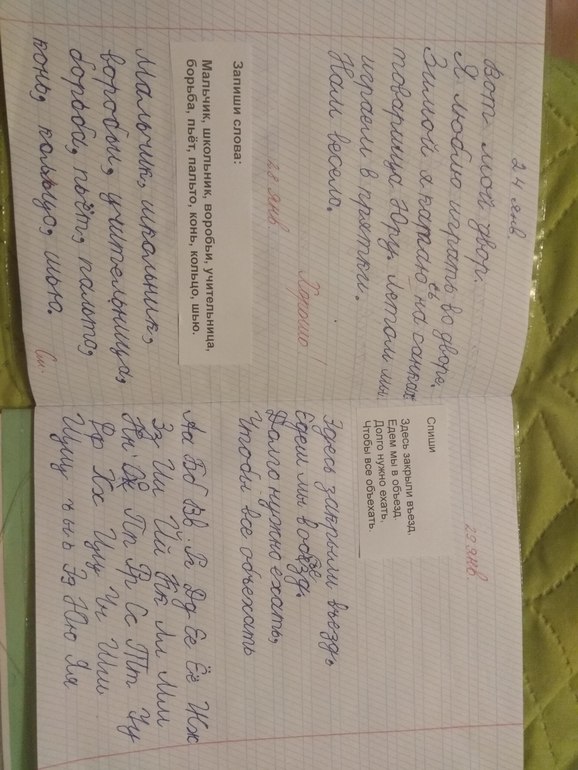 24 янв
Вот мой двор.
Я люблю играть во дворе.
Зимой я катаю сь на санках
товарища Юру. Летом мы
играем в прятки.
Нам весело.
Хорошо
28 янв
Запиши слова:
Мальчик, школьник, воробьи, учительница,
борьба, пьёт, пальто, конь, кольцо, шью.
Мальчик, школьник,
воробьи, учительница,
борьба, пьёт, пальто,
конь, кольцо, шью.
См.
29 янв
Спиши
Здесь закрыли въезд.
Едем мы в объезд.
Долго нужно ехать,
Чтобы все объехать.
Здесь закрыли въездъ
Едем мы в объезд.
Долго нужно ехать,
Чтобы все объехать
Аа Бб Вв Гг Дд Ее Ёё Жж
Зз Ии Йй Кк Лл Мм
Нн Оо Пп Рр Сс Тт Уу
Фф Хх Цц Чч Шш
Щщ ъ ы ь Ээ Юю Яя